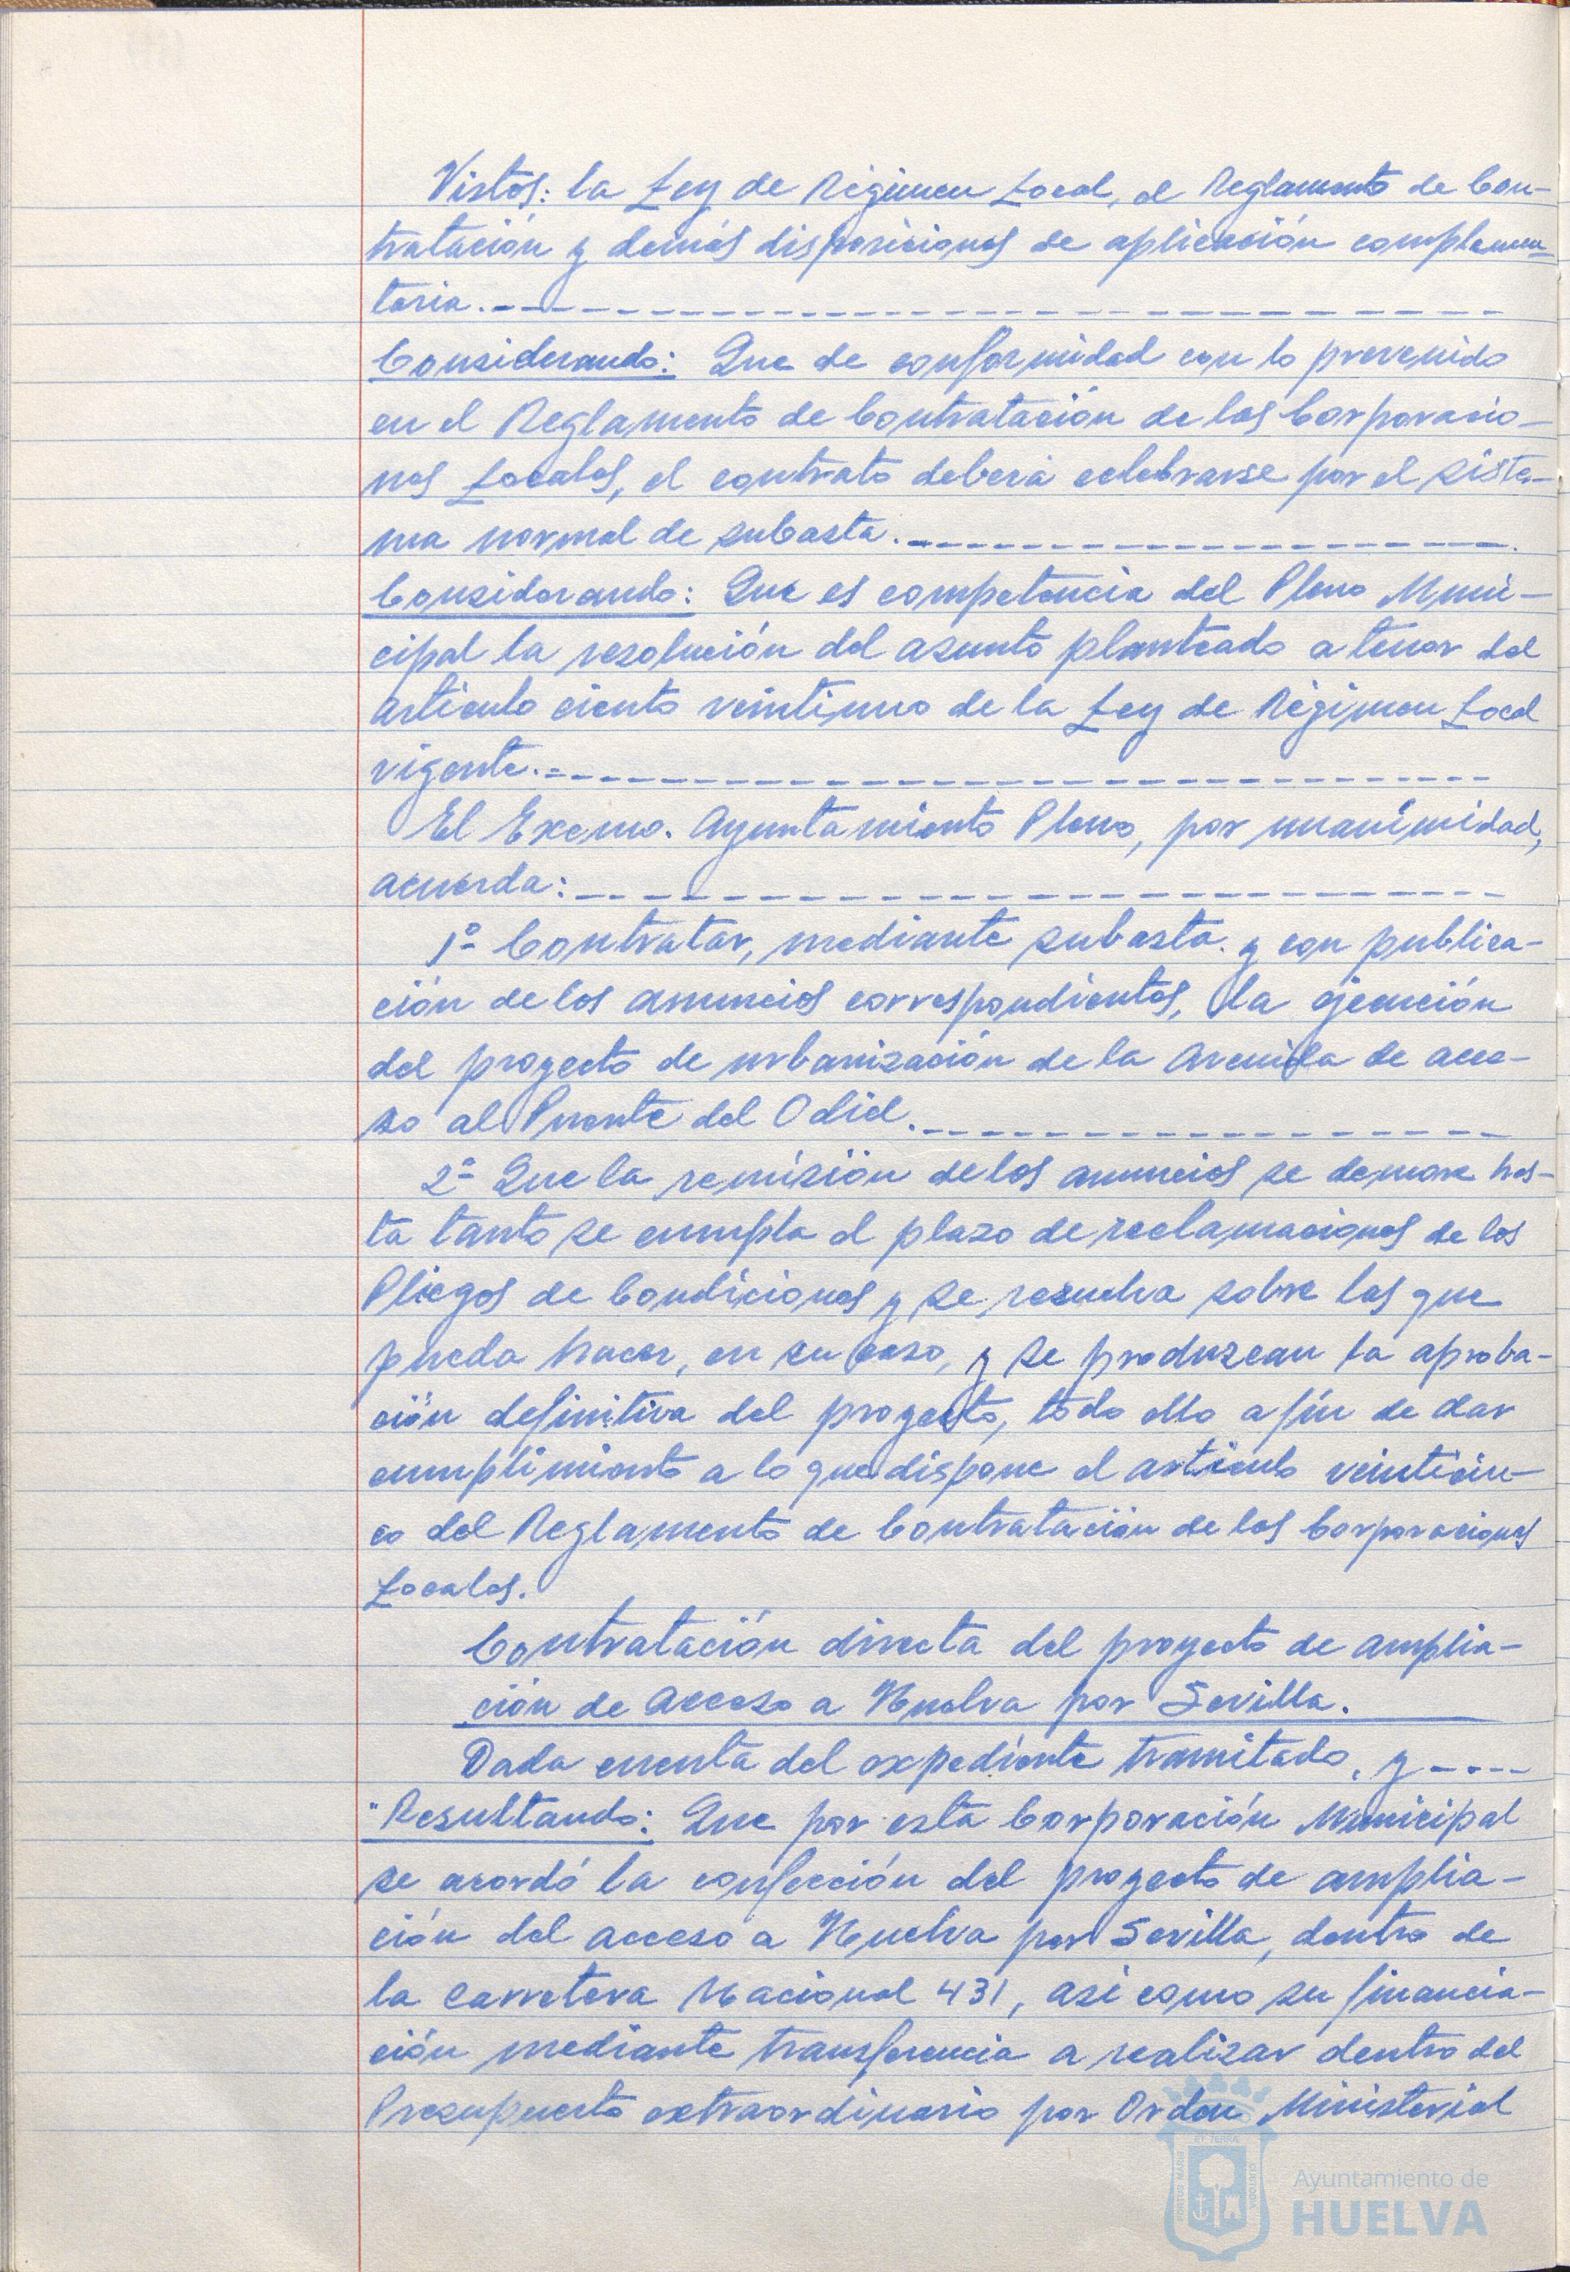 Vistos: la Ley de Régimen Local, el Reglamento de Con-
tratación y demás disposiciones de aplicación complemen-
taria.
Considerando: Que de conformidad con lo prevenido
en el Reglamento de Contratación de las Corporacio-
nes Locales, el contrato deberá celebrarse por el siste-
ma normal de subasta.
Considerando: Que es competencia del Pleno Muni-
cipal la resolución del asunto planteado a tenor del
artículo ciento veintiuno de la Ley de Régimen Local
vigente.
El Excmo. Ayuntamiento Pleno, por unanimidad,
acuerda:
1º Contratar, mediante subasta y con publica-
ción de los anuncios correspondientes, la ejecución
del proyecto de urbanización de la Avenida de acce-
so al Puente del Odiel.
2º Que la remisión de los anuncios se demore has-
ta tanto se cumpla el plazo de reclamaciones de los
Pliegos de Condiciones y se resuelva sobre las que
pueda hacer, en su caso, y se produzcan la aproba-
ción definitiva del proyecto, todo ello a fin de dar
cumplimiento a lo que dispone el artículo veinticin-
co del Reglamento de Contratación de las Corporaciones
Locales.
Contratación directa del proyecto de amplia-
ción de acceso a Huelva por Sevilla.
Dada cuenta del expediente tramitado, y
"Resultando: Que por esta Corporación Municipal
se acordó la confección del proyecto de amplia-
ción del acceso a Huelva por Sevilla, dentro de
la carretera Nacional 431, así como su financia-
ción mediante transferencia a realizar dentro del
Presupuesto extraordinario por Orden Ministerial
Ayuntamiento de
HUELVA